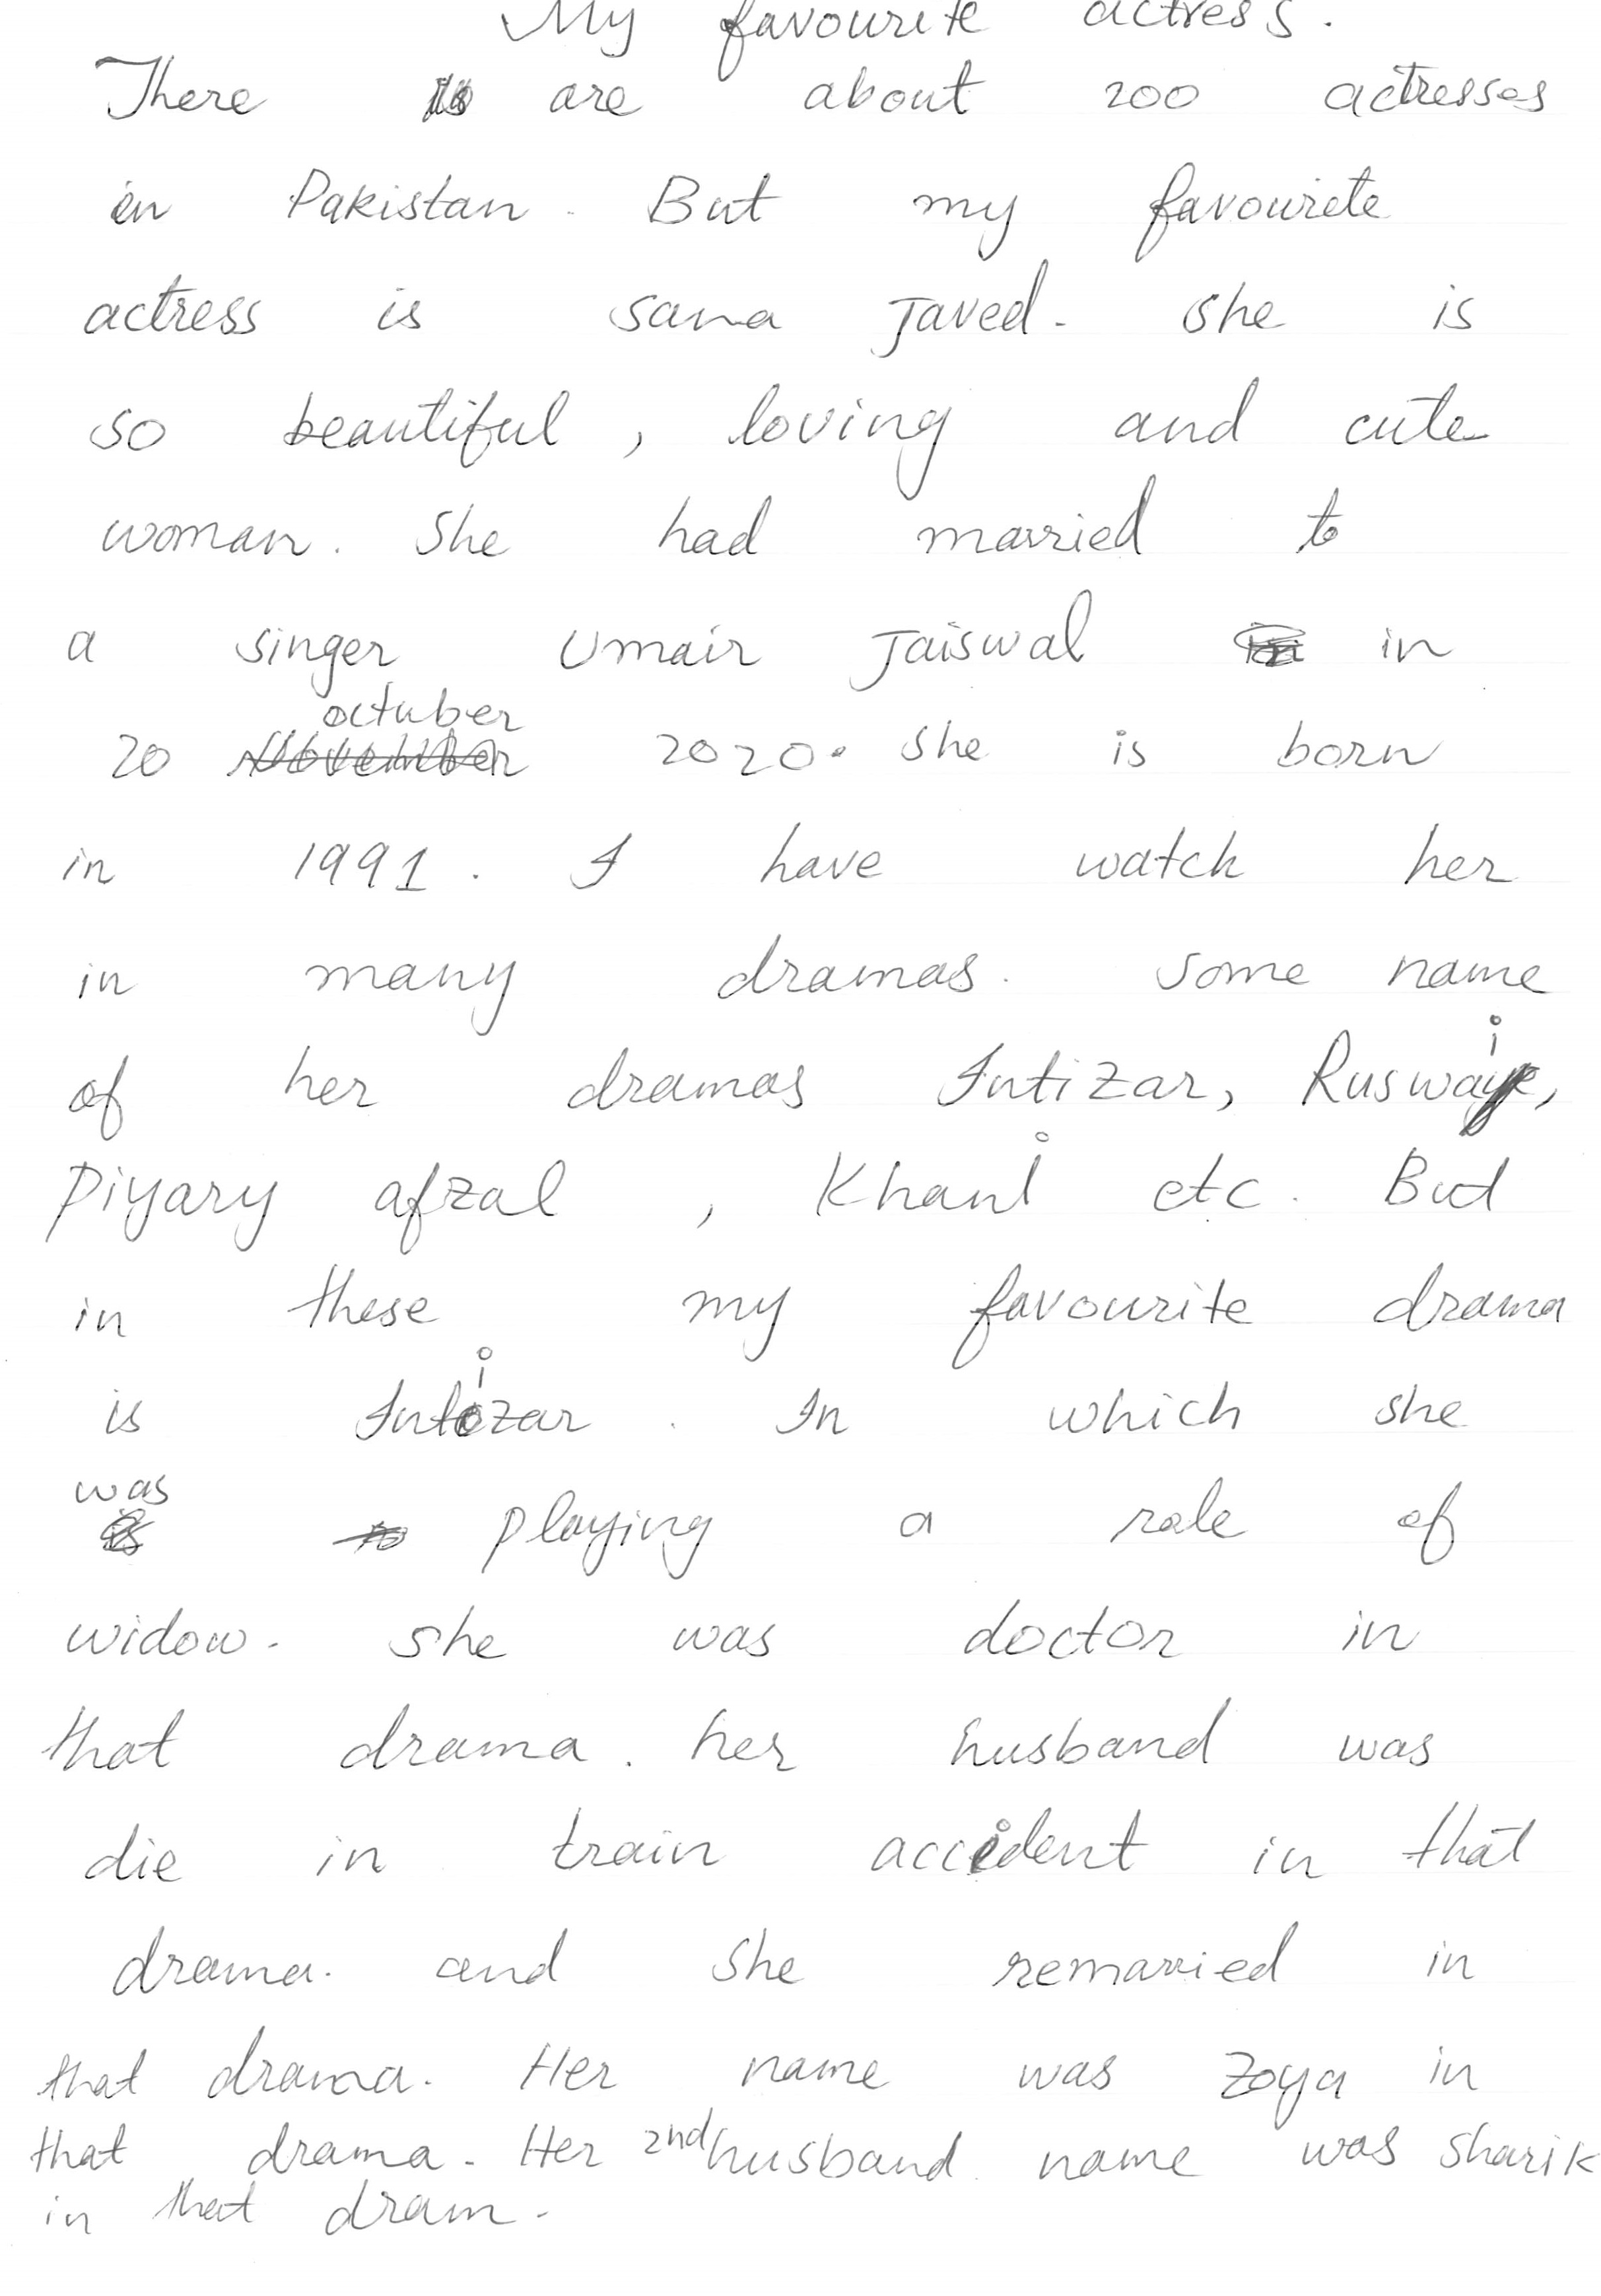 My favourite actress.
There are about 200 actresses
in Pakistan. But my favourite
actress is sana Javed. she is
so beautiful, loving and cute
woman. She had married to
a singer Umair Jaiswal in
20 octuber 2020. she is born
in 1991. I have watch her
in many dramas. some name
of her dramas Intizar, Ruswai,
Piyary afzal, Khani etc. But
in these my favourite drama
is Intizar. In which she
was playing a role of
widow. she was doctor in
that drama. her husband was
die in train accident in that
drama. and she remarried in
that drama. Her name was Zoya in
that drama. Her 2nd husband name was sharik
in that dram.